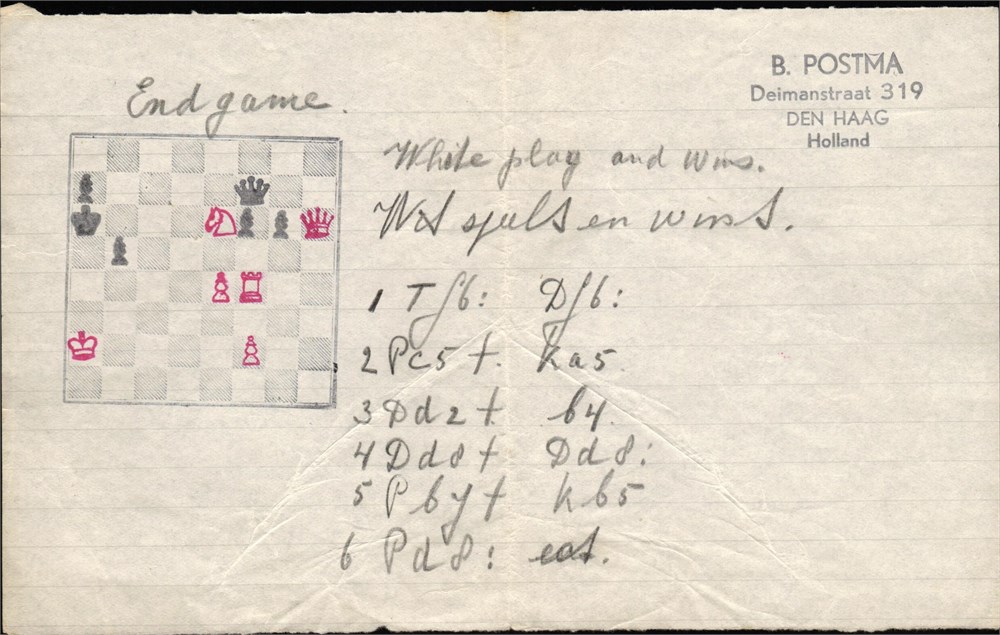 B. POSTMA
Deimanstraat 319
DEN HAAG
Holland
End game.
White play and wins.
Wit speelt en wint.
1 Tf6: Df6:
2 Pc5 +. Ka5.
3 Dd2 + b4.
4 Dd8 + Dd8:
5 Pb7 + Kb5
6 Pd8: ect.